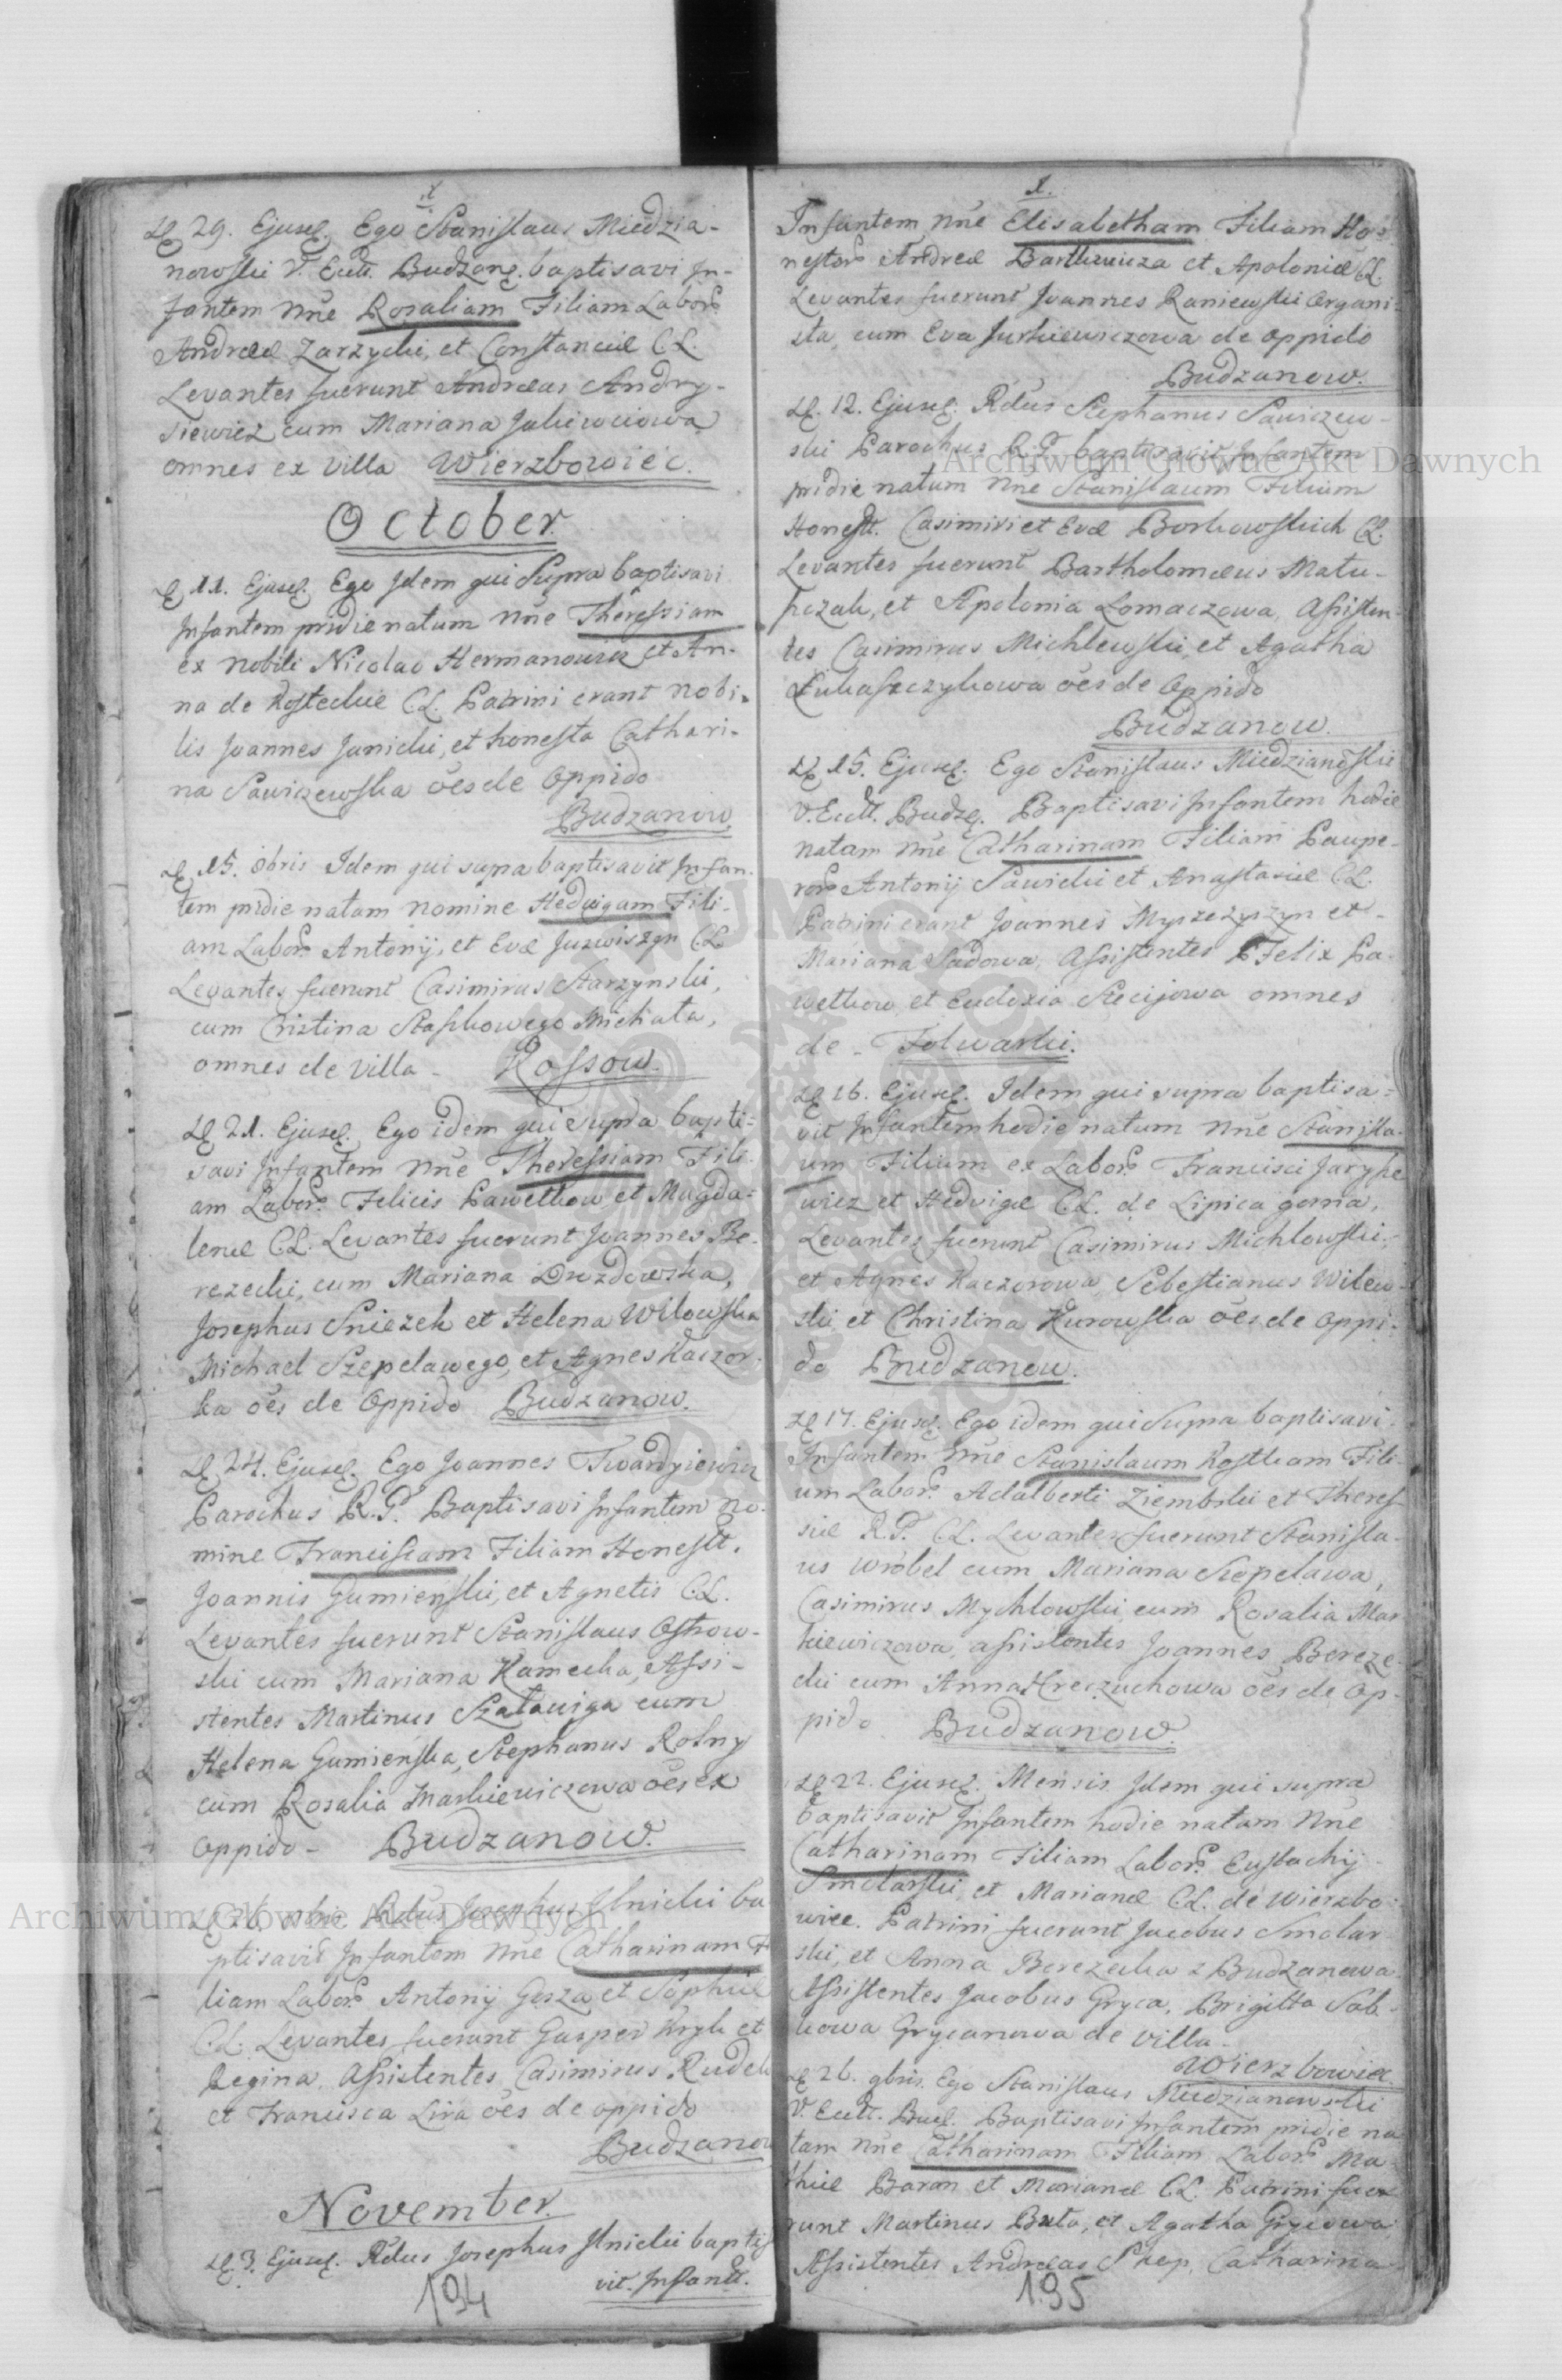 29. Ejusd. Ego Stanislaus Miedzia-
nowski V. Eccl. Budzan. baptisavi In-
fantem Nne Rosaliam Filiam Labor.
Andreæ Zarzycki, et Constanciæ C.L.
Levantes fuerunt Andreas Andry-
siewicz cum Mariana
omnes ex Villa Wierzbowiec.
October.
11. Ejusd. Ego Idem qui Supra baptisavi
Infantem pridie natum Nne Theressiam
ex nobili Nicolao Hermanowicz et An-
na de C.L. Patrini erant Nobi-
lis Joannes Janicki, et honesta Cathari-
na Sawiczewska oes de Oppido
Budzanow.
15. 8bris Idem qui supra baptisavit Infan-
tem pridie natam nomine Hedvigam Fili-
am Labor. Antonij, et Evæ C.L.
Levantes fuerunt Casimirus Starzynski,
cum Cristina Staszkowego Michała,
omnes de Villa - Kossow.
21. Ejusd. Ego idem qui supra bapti=
savi Infantem Nne Theressiam Fili-
am Labor. Felicis Pawełkow et Magda=
lenæ C.L. Levantes fuerunt Joannes Be-
rezecki, cum Mariana Drozdowska,
Josephus Sniezek et Helena Witowska
Michael Szepelawego, et Agnes Kaczor-
ka oes de Oppido Budzanow.
24. Ejusd. Ego Joannes Twardyiewicz
Parochus R.P. Baptisavi Infantem no-
mine Franciscam Filiam Honestt.
Joannis Gumienski, et Agnetis C.L.
Levantes fuerunt Stanislaus Ostrow-
ski cum Mariana Kamecka, Assi-
stentes Martinus cum
Helena Gumienska, Stephanus Rolny
cum Rosalia Markiewiczowa oes ex
Oppido - Budzanow.
26. Rdus Josephus Ilnicki ba
ptisavit Infantem Nne Catharinam Fi
liam Labor. Antonij et Sophiæ
C.L. Levantes fuerunt Gasper et
Regina, Assistentes Casimirus Rudek
et Francisca Lira oes de oppido
Budzanow
November.
3. Ejusd. Rdus Josephus Ilnicki baptis
vit. Infant.
194
Infantem Nne Elisabetham Filiam Ho-
nestor. Andreæ et Apoloniæ C.L.
Levantes fuerunt Joannes Raniewski Organi-
sta, cum Eva Jurkiewiczowa de Oppido
Budzanow.
12. Ejusd. Rdus Stephanus Sawiczew-
ski Parochus R.P. baptisavit Infantem
pridie natum Nne Stanislaum Filium
Honestt. Casimiri et Evæ Borkowskich C.L.
Levantes fuerunt Bartholomæus Matu-
szczak, et Apolonia Lomaczowa, Assisten-
tes Casimirus Michlewski, et Agatha
Łukaszczykowa oes de Oppido
Budzanow.
15. Ejusd. Ego Stanislaus Miedzianoski
V. Eccll. Budz. Baptisavi Infantem hodie
natam Nne Catharinam Filiam Paupe-
ror. Antonij Sawicki et Anastasiæ C.L.
Patrini erant Joannes et -
Mariana Sadowa, Assistentes Felix Pa-
wełkow, et Eudoxia Stecijowa omnes
de - Folwarki.
16. Ejusd. Idem qui supra baptisa=
vit Infantem hodie natum Nne Stanisla-
um Filium ex Labor. Francisci Jarysze
wicz et Hedvigæ C.L. de Lipica gorna,
Levantes fuerunt Casimirus Michlowski,
et Agnes Kaczorowa, Sebestianus Witow-
ski et Christina Kurowska oes de Oppi-
do Budzanow.
17. Ejusd. Ego idem qui Supra baptisavi
Infantem Nne Stanislaum Kostkam Fili-
um Labor. Adalberti Ziembski et Theres-
siæ R.P. C.L. Levantes fuerunt Stanisla-
us Wrobel cum Mariana Szepelawa,
Casimirus Mychlowski cum Rosalia Mar
kiewiczowa, assistentes Joannes Bereze-
cki cum Anna Hreczuchowa oes de Op-
pido Budzanow.
22. Ejusd. Mensis Idem qui supra
baptisavit Infantem hodie natam Nne
Catharinam Filiam Labor. Eustachij
Smolarski, et Marianæ C.L. de Wierzbo-
wiec. Patrini fuerunt Jacobus Smolar
ski, et Anna Berezecka z Budzanowa.
Assistentes Jacobus Gryca, Brigitta Sob-
kowa Grycanowa de Villa -
Wierzbowiec
26. 9bris Ego Stanislaus Miedzianowski
V. Eccll. Bud. Baptisavi Infantem pridie na
tam Nne Catharinam Filiam Labor. Ma-
thiæ Baran et Marianæ C.L. Patrini fue
runt Martinus Buta, et Agatha Grycowa
Assistentes Andreas Catharina
195
Archiwum Główne Akt Dawnych
Archiwum Główne Akt Dawnych